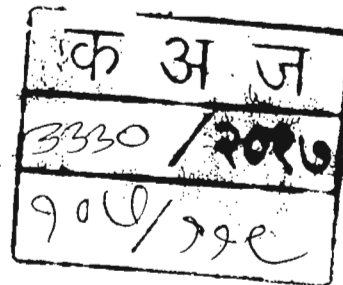 क अ ज
3330 / २०१७
१०७/११९